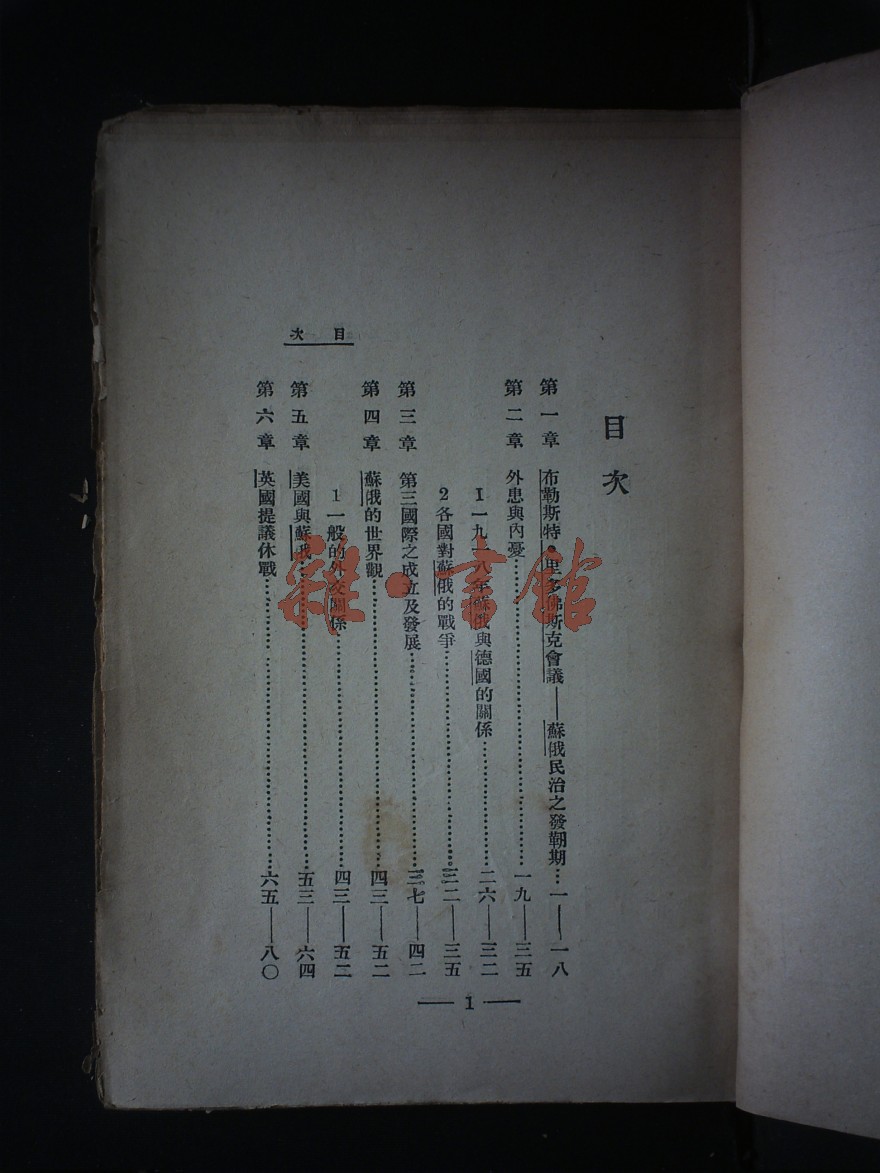 目次
第一章 布勒斯特·里多佛斯克會議——蘇俄民治之發軔期…一——一八
第二章 外患與內憂……一九——三五
1 一九一八年蘇俄與德國的關係……二六——三二
2 各國對蘇俄的戰爭……三二——三五
第三章 第三國際之成立及發展……三七——四二
第四章 蘇俄的世界觀……四三——五二
1 一般的外交關係……四三——五二
第五章 美國與蘇俄……五三——六四
第六章 英國提議休戰……六五——八〇
目次
—— 1 ——
雜·書館